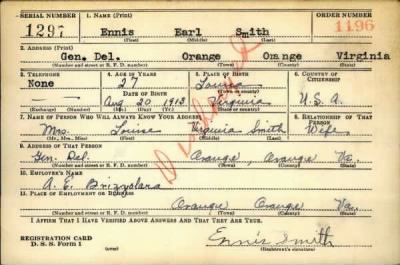 SERIAL NUMBER 1. NAME (Print) ORDER NUMBER
1297 Ennis Earl Smith 1196
(First) (Middle) (Last)
2. ADDRESS (Print)
Gen. Del. Orange Orange Virginia
(Number and street or R. F. D. number) (Town) (County) (State)
3. TELEPHONE 4. AGE IN YEARS 5. PLACE OF BIRTH 6. COUNTRY OF CITIZENSHIP
None 27 Louisa
DATE OF BIRTH (Town or county)
— — Aug 20 1913 Virginia U.S.A.
(Exchange) (Number) (Mo.) (Day) (Yr.) (State or country)
7. NAME OF PERSON WHO WILL ALWAYS KNOW YOUR ADDRESS 8. RELATIONSHIP OF THAT PERSON
Mrs. Louise Virginia Smith Wife
(Mr., Mrs., Miss) (First) (Middle) (Last)
9. ADDRESS OF THAT PERSON
Gen. Del. Orange, Orange Va.
(Number and street or R. F. D. number) (Town) (County) (State)
10. EMPLOYER'S NAME
A. E. Brizzolara
11. PLACE OF EMPLOYMENT OR BUSINESS
Orange Orange Va.
(Number and street or R. F. D. number) (Town) (County) (State)
I AFFIRM THAT I HAVE VERIFIED ABOVE ANSWERS AND THAT THEY ARE TRUE.
REGISTRATION CARD Ennis Smith
D. S. S. Form 1 (Registrant's signature)